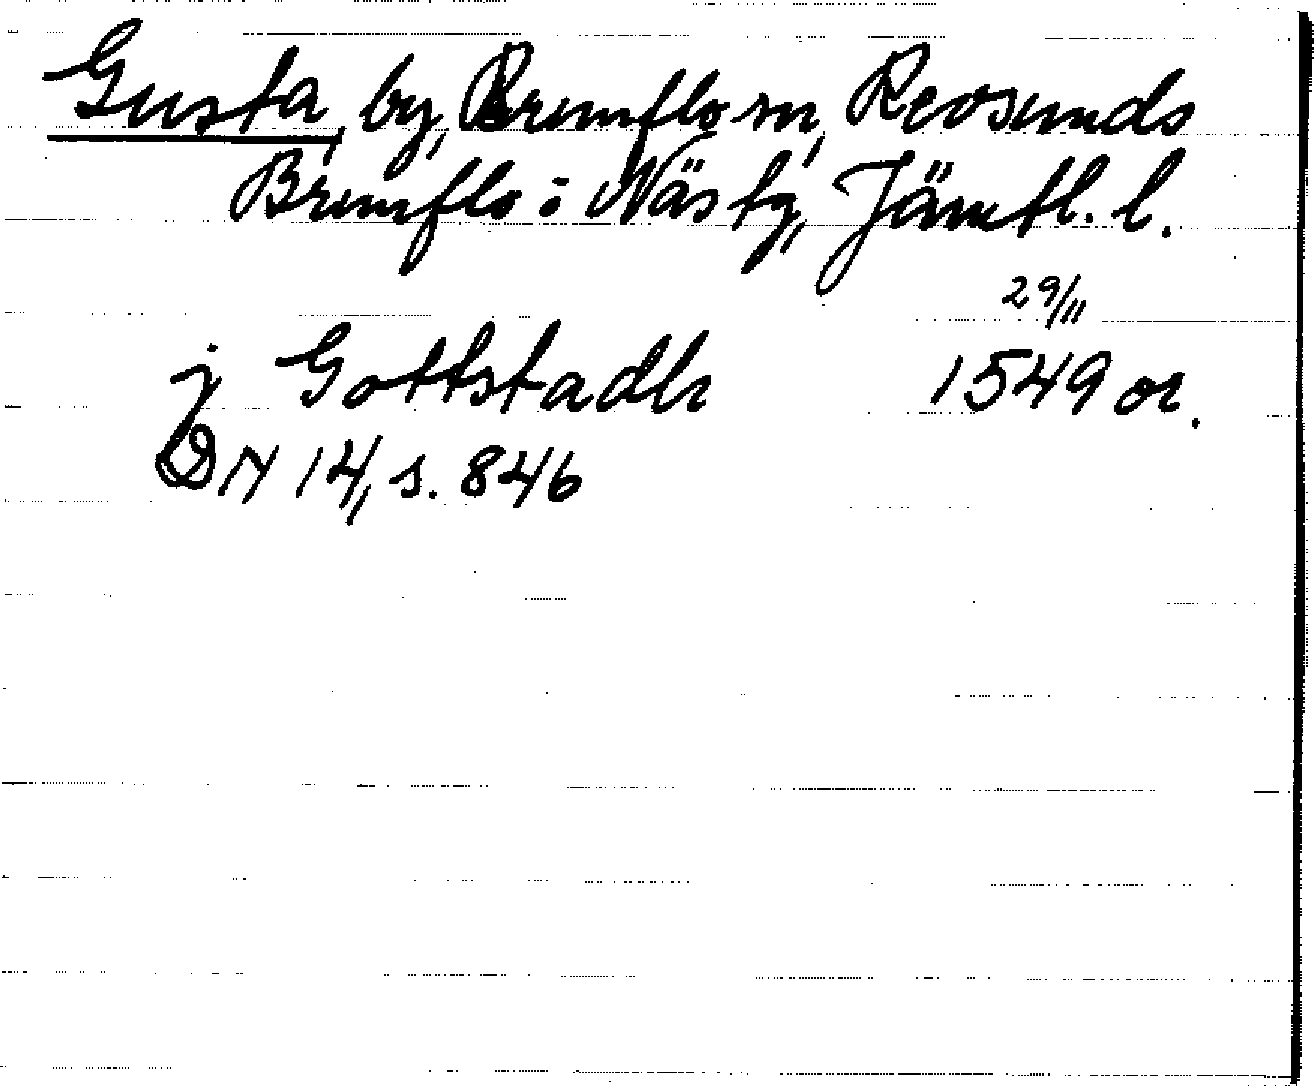 Gusta, by, Brunflo sn, Revsunds
Brunflo o Näs tg, Jämtl. l.
29/11
j Gottstadh 1549 or.
DN 14, s. 846